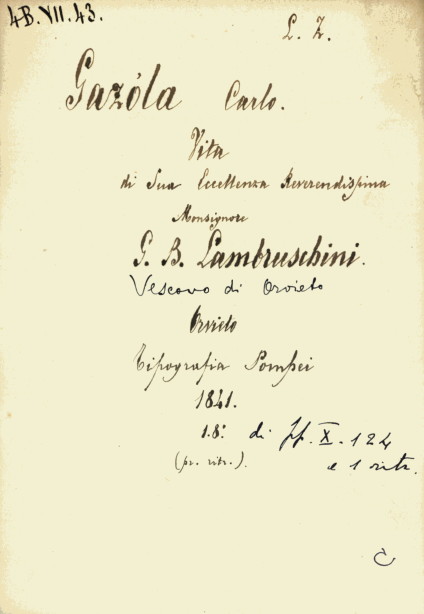 4B.VII.43.
L. Z.
Gazóla Carlo.
Vita
di Sua Eccellenza Reverendissima
Monsignore
G. B. Lambruschini.
Vescovo di Orvieto
Orvieto
Tipografia Pompei
1841.
1. 8.° di pp. X. 124
(pr. ritr.). e 1 ritr.
C